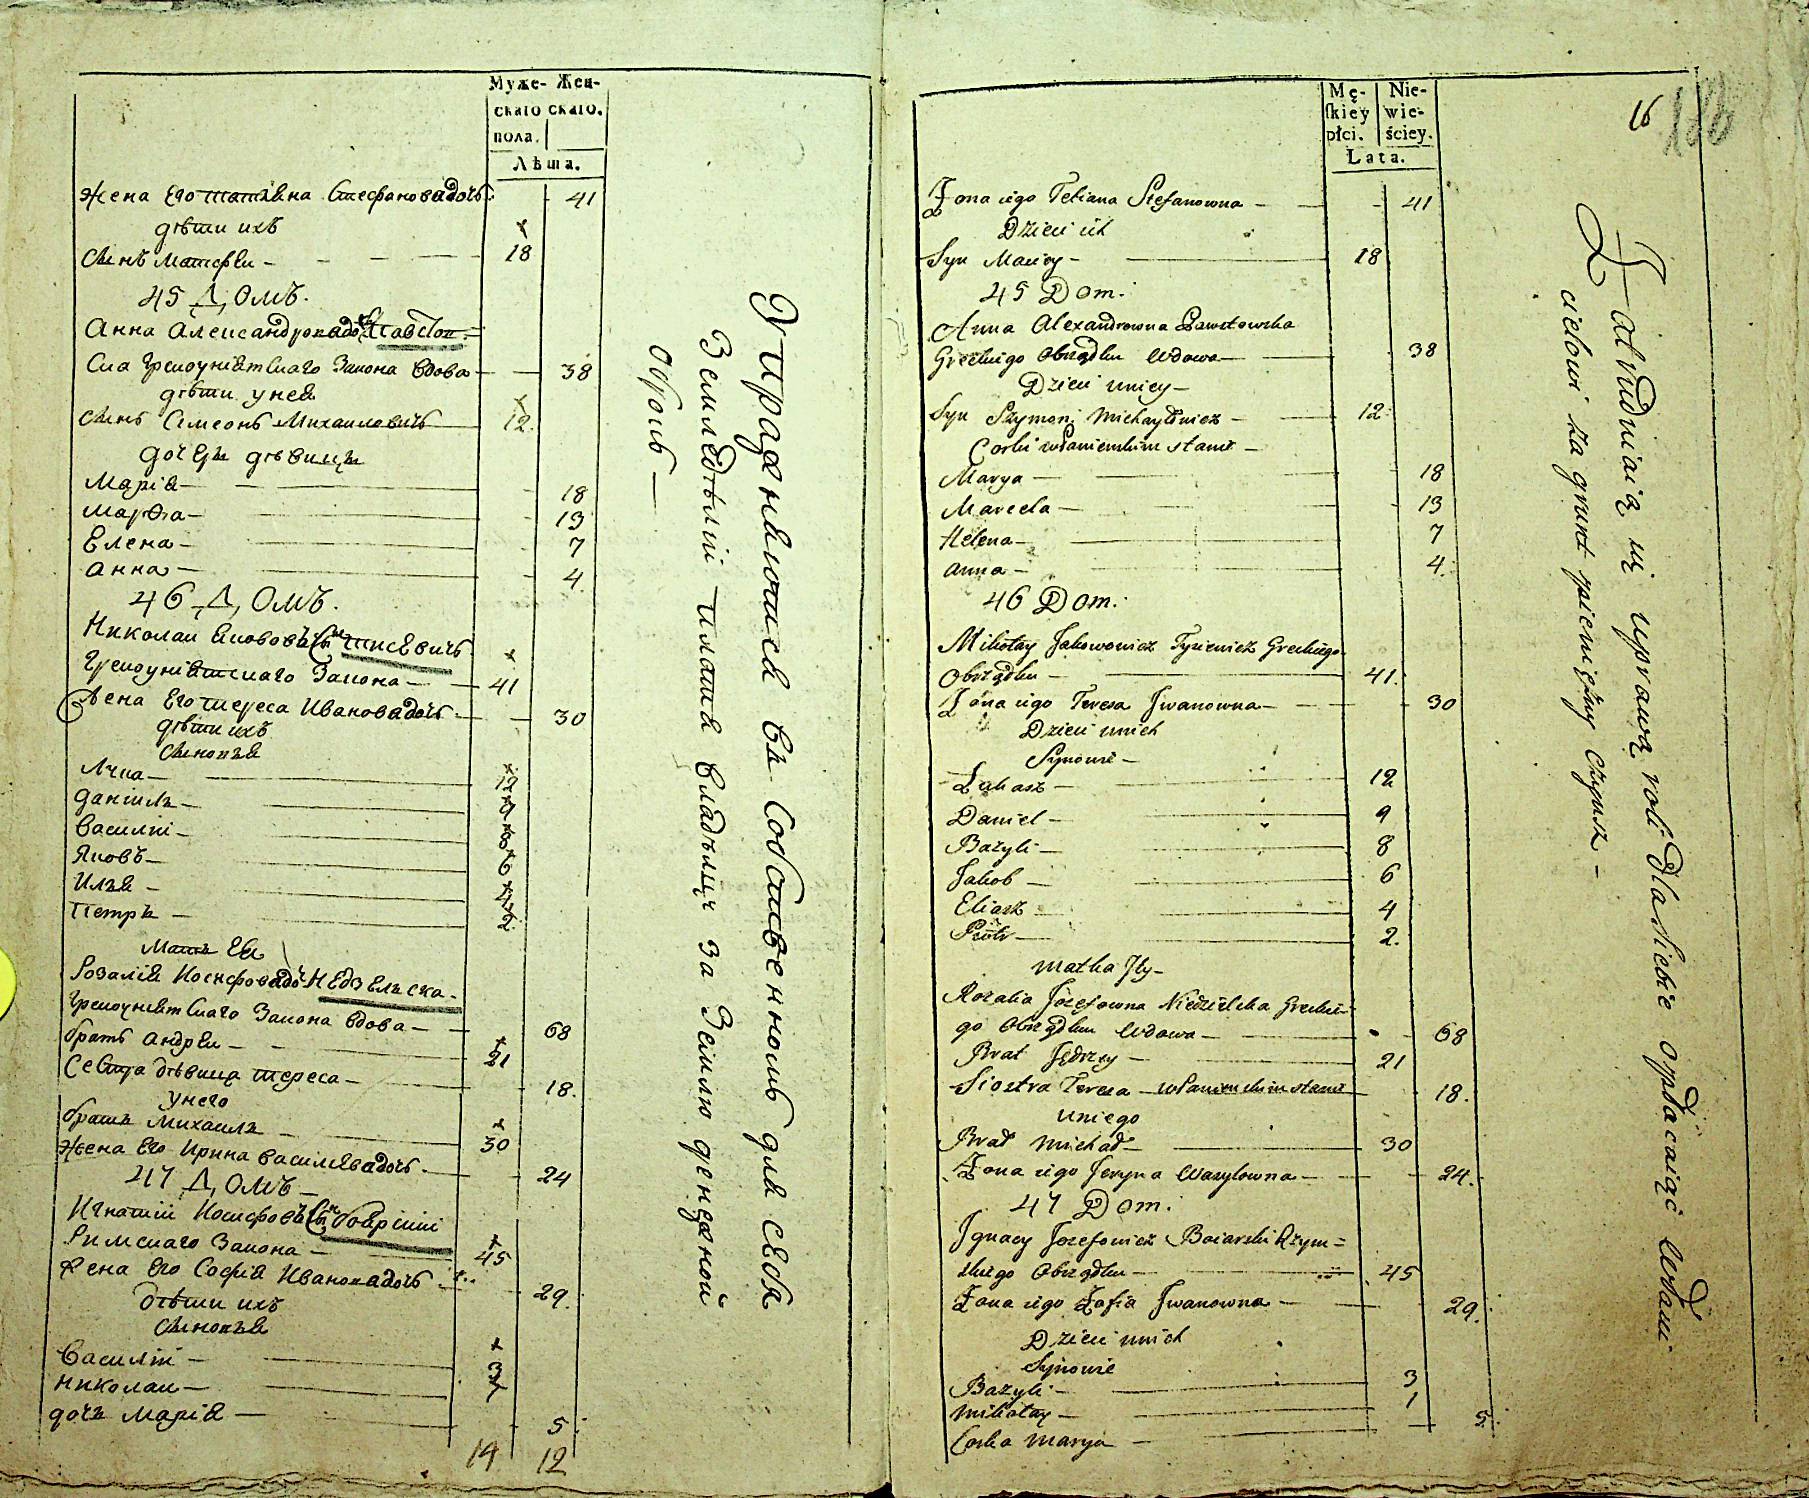 Муже- Жен-
скаго скаго.
пола.
Лѣта.
Жена Его татіяна Стефановадочь 41
дѣти ихъ
Сынъ Матфеи 18
45 Домъ.
Анна Александровадочь
Ска Грекоуніятскаго Закона вдова 38
дѣти у нея
Сынъ Симеонъ Михаиловичь 12.
дочери дѣвицы
Марія 18
Марѳа 13
Елена 7
Анна 4.
46 Домъ.
Николаи Яковов Сынъ тисевичъ
Грекоуніятскаго Закона 41
Жена Его тереса Ивановадочь 30
дѣти ихъ
Сыновья
Лука 12
Даніилъ 9
Василій 8
Яковъ 6
Илья 4
Петръ 2.
Мать Ея
Розалія Иосифовадоч Недзельска
Грекоуніятскаго Закона вдова 68
братъ Андреи 21
Сестра дѣвица тереса 18.
у него
братъ Михаилъ 30
Жена Его Ирина Василевадочь 24
47 Домъ
Игнатіи Иосифов Сынъ боярскіи
Римскаго Закона 45
Жена Его Софія Ивановадочь 29.
дѣти ихъ
Сыновья
Василій 3
Николаи 1
дочь Марія 5
14 12
Упражняются въ Собственномъ для себя
Земледѣліи платя владѣльцу за Землю денежной
Оброкъ
Mę- Nie-
skiey wie-
płci. ściey.
Lata.
16
Żona iego Tetiana Stefanowna 41
Dzieci ich
Syn Maciey 18
45 Dom.
Anna Alexandrowna Pawstowska
Greckiego Obrządku Wdowa 38
Dzieci uniey
Syn Szymon Michayłowicz 12
Corki w Panienskim stanie
Marya 18
Marcela 13
Helena 7
Anna 4.
46 Dom.
Mikołay Jakowowicz Tysiewicz Greckiego
Obrządku 41.
Żona iego Teresa Jwanowna 30
Dzieci unich
Synowie
Łukasz 12
Daniel 9
Bazyli 8
Jakob 6
Eliasz 4
Piotr 2.
Matka Jey
Rozalia Józefowna Niedzielska Greckie-
go Obrządku Wdowa 68
Brat Jędrzey 21
Siostra Teresa w Panienskim stanie 18.
uniego
Brat Michał 30
Żona iego Jeryna Wasylowna 24.
47 Dom.
Jgnacy Jozefowicz Boiarski Rzym=
skiego Obrządku 45
Żona iego Zofia Jwanowna 29.
Dzieci unich
Synowie
Bazyli 3
Mikołay 1
Corka Marya 5.
Zatrudniaią się uprawą roli dla siebie opłacaiąc Wła
cielowi za grunt pieniężny Czynsz